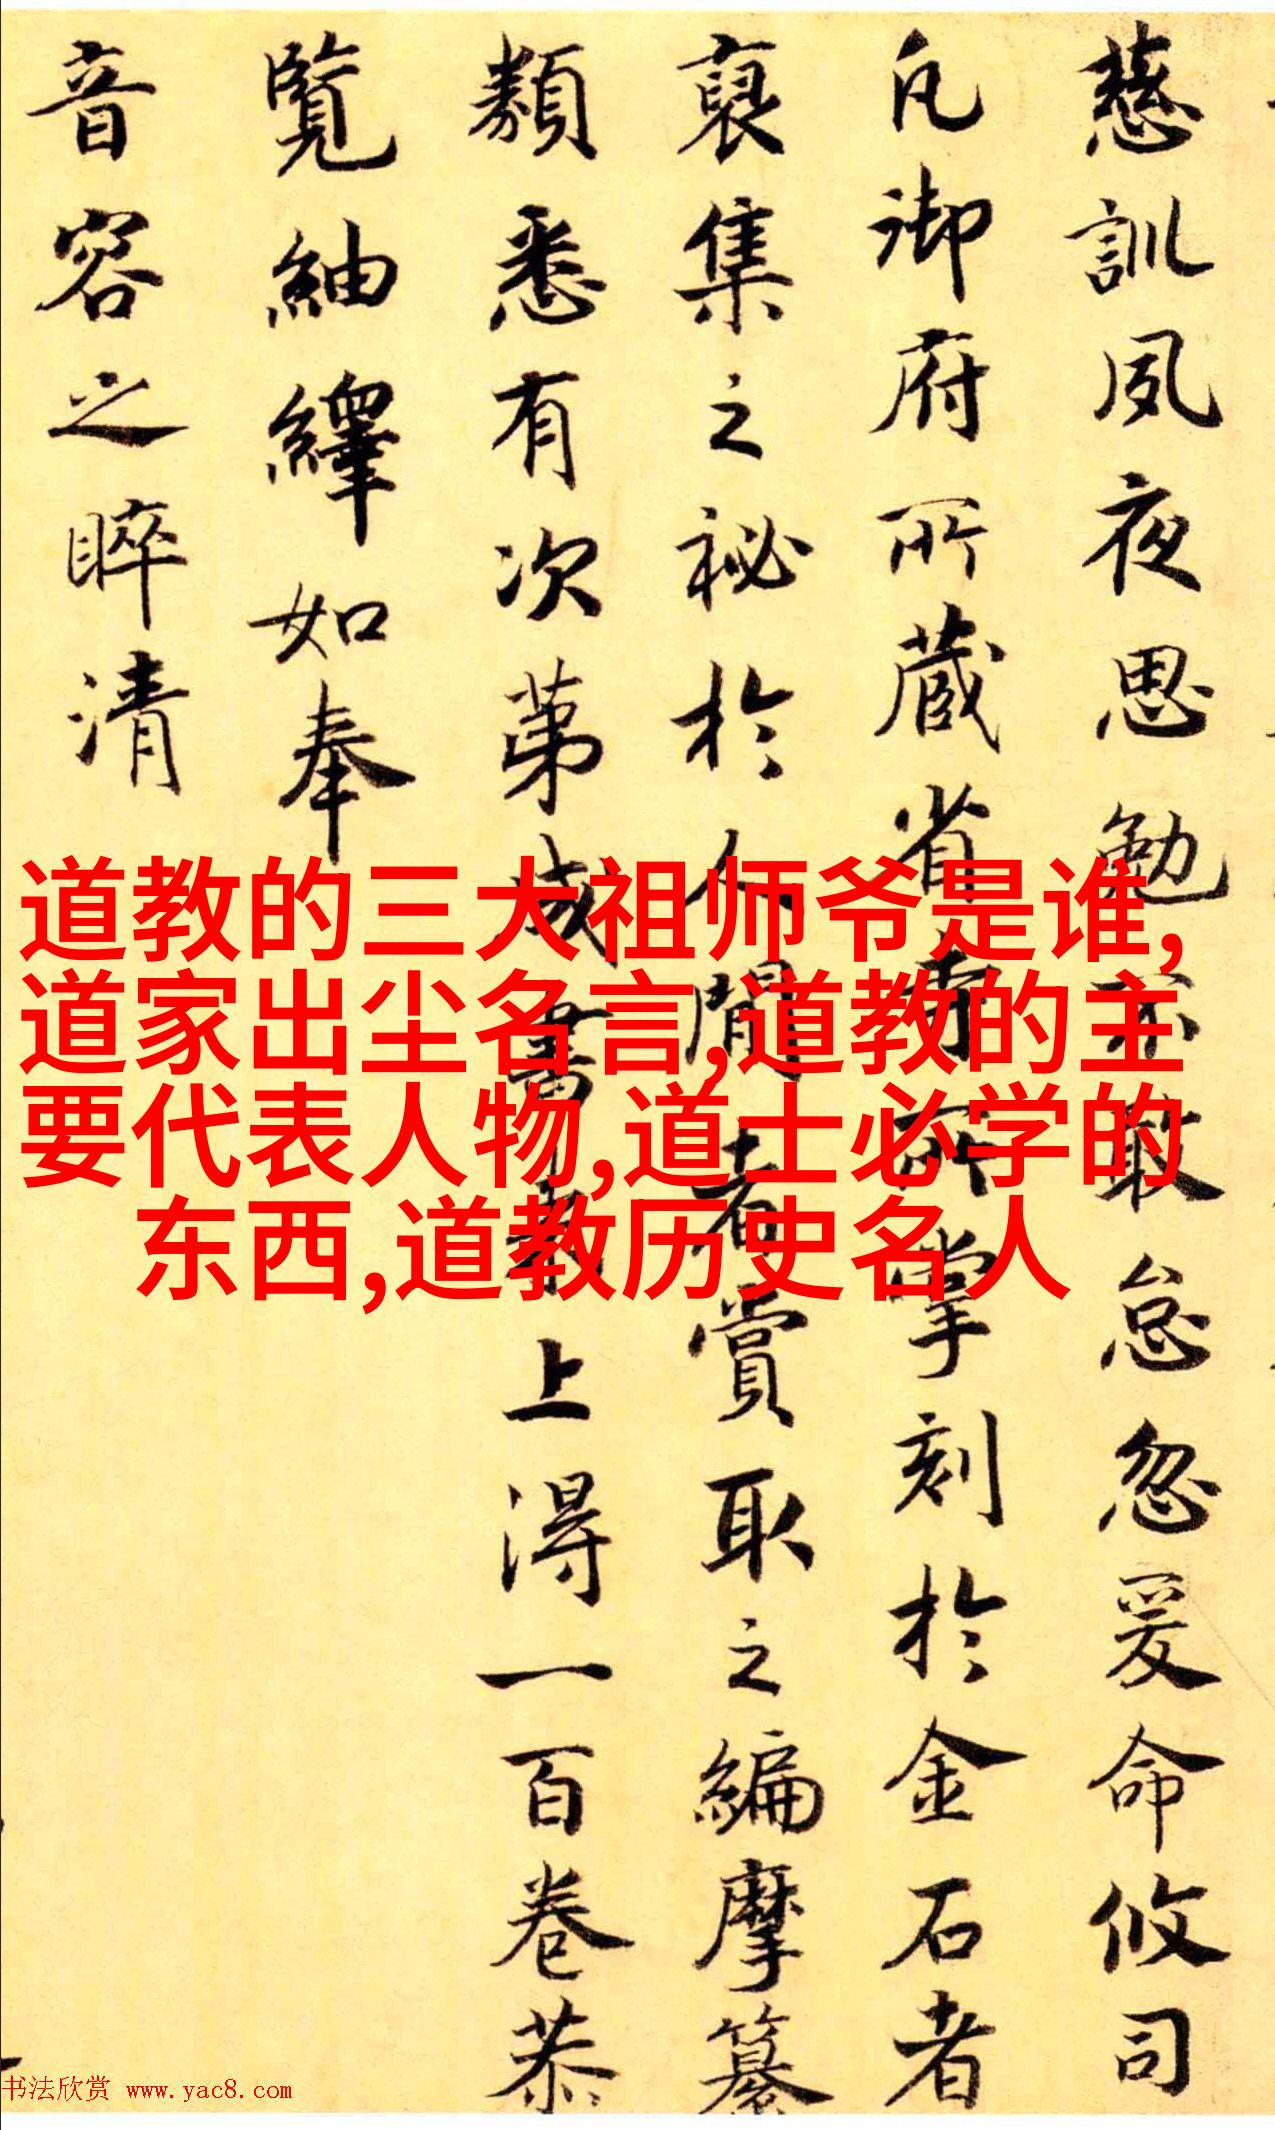 慈訓夙夜思勉不敢怠忽爰命攸司
凡御府所藏省寺所掌刻於金石者
裒集之祕於人間者賞取之編摩纂
類悉有次第成書 上得一百卷恭
覽紬繹如奉
音容之睟清
道教的三大祖师爷是谁,
道家出尘名言,道教的主
要代表人物,道士必学的
东西,道教历史名人
书法欣赏 www.yac8.com